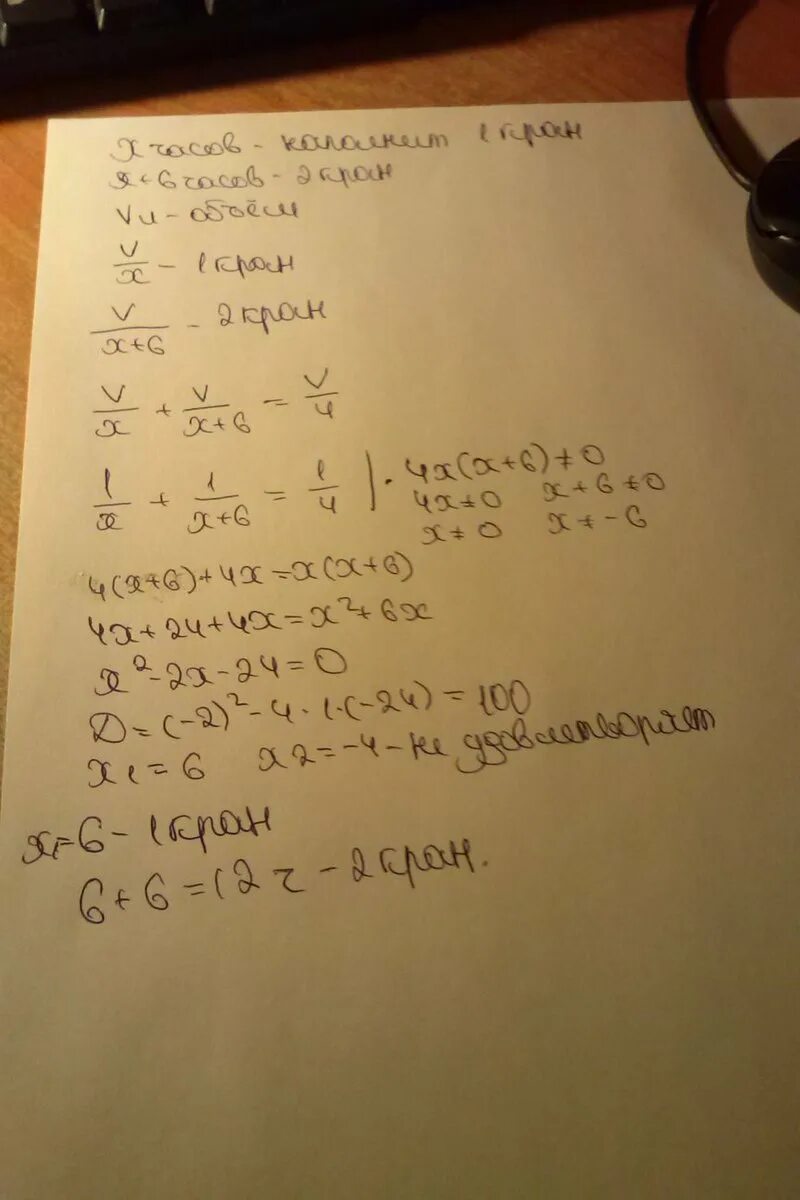 x часов - наполнит 1 кран
x+6 часов - 2 кран
V л - объём
V/x - 1 кран
V/(x+6) - 2 кран
V/x + V/(x+6) = V/4
1/x + 1/(x+6) = 1/4 | · 4x(x+6) ≠ 0
4x ≠ 0 x+6 ≠ 0
x ≠ 0 x ≠ -6
4(x+6)+4x=x(x+6)
4x+24+4x=x²+6x
x²-2x-24=0
D=(-2)²-4·1·(-24)=100
x1=6 x2=-4-не удовлетворяет
x1=6-1 кран
6+6=12 ч - 2 кран.